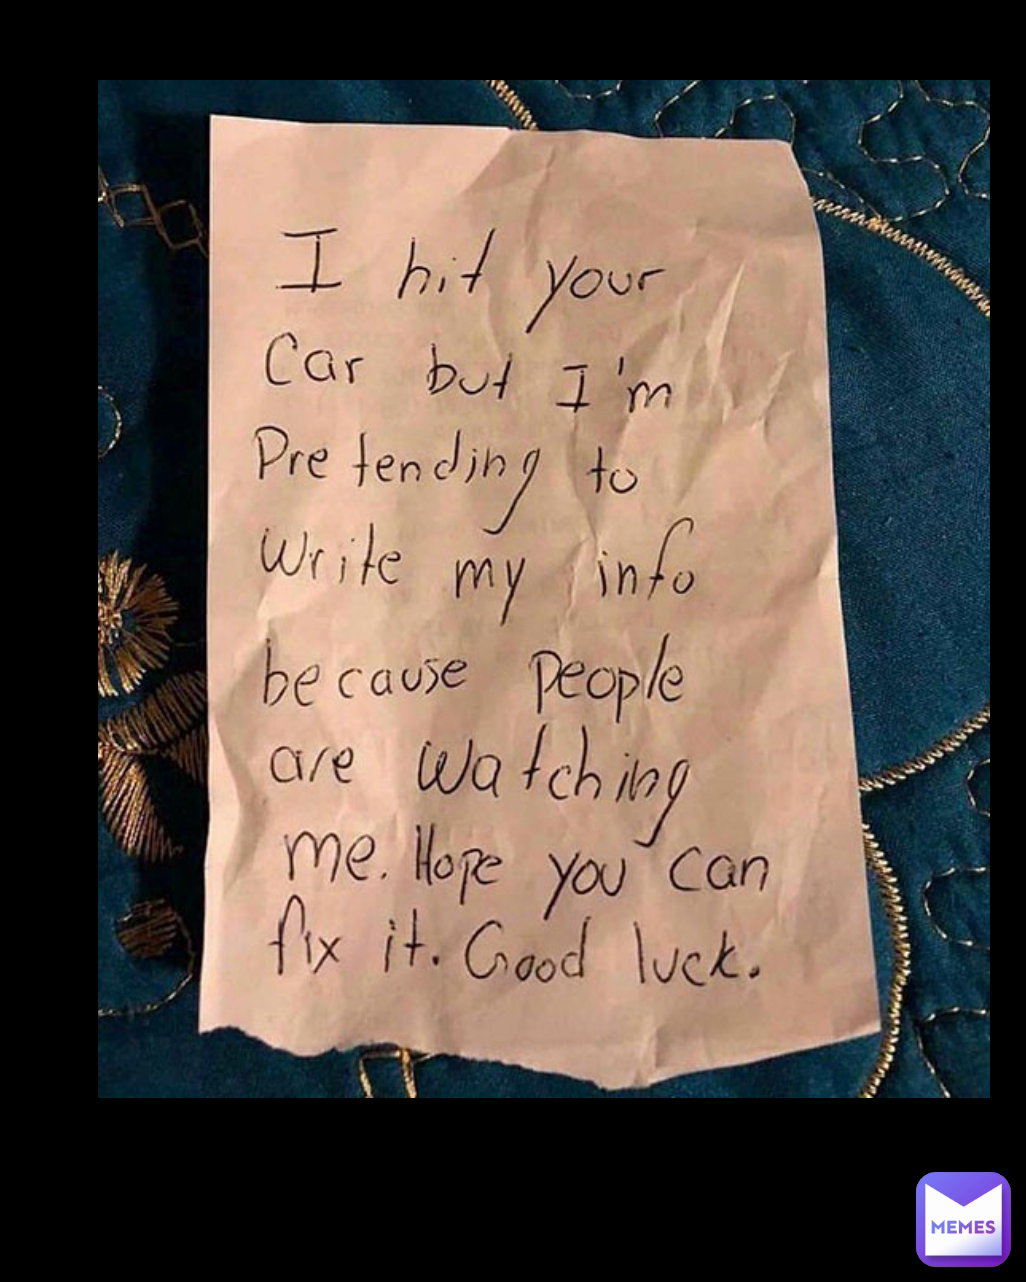 I hit your
Car but I'm
Pretending to
write my info
because people
are watching
me. Hope you can
fix it. Good luck.
MEMES